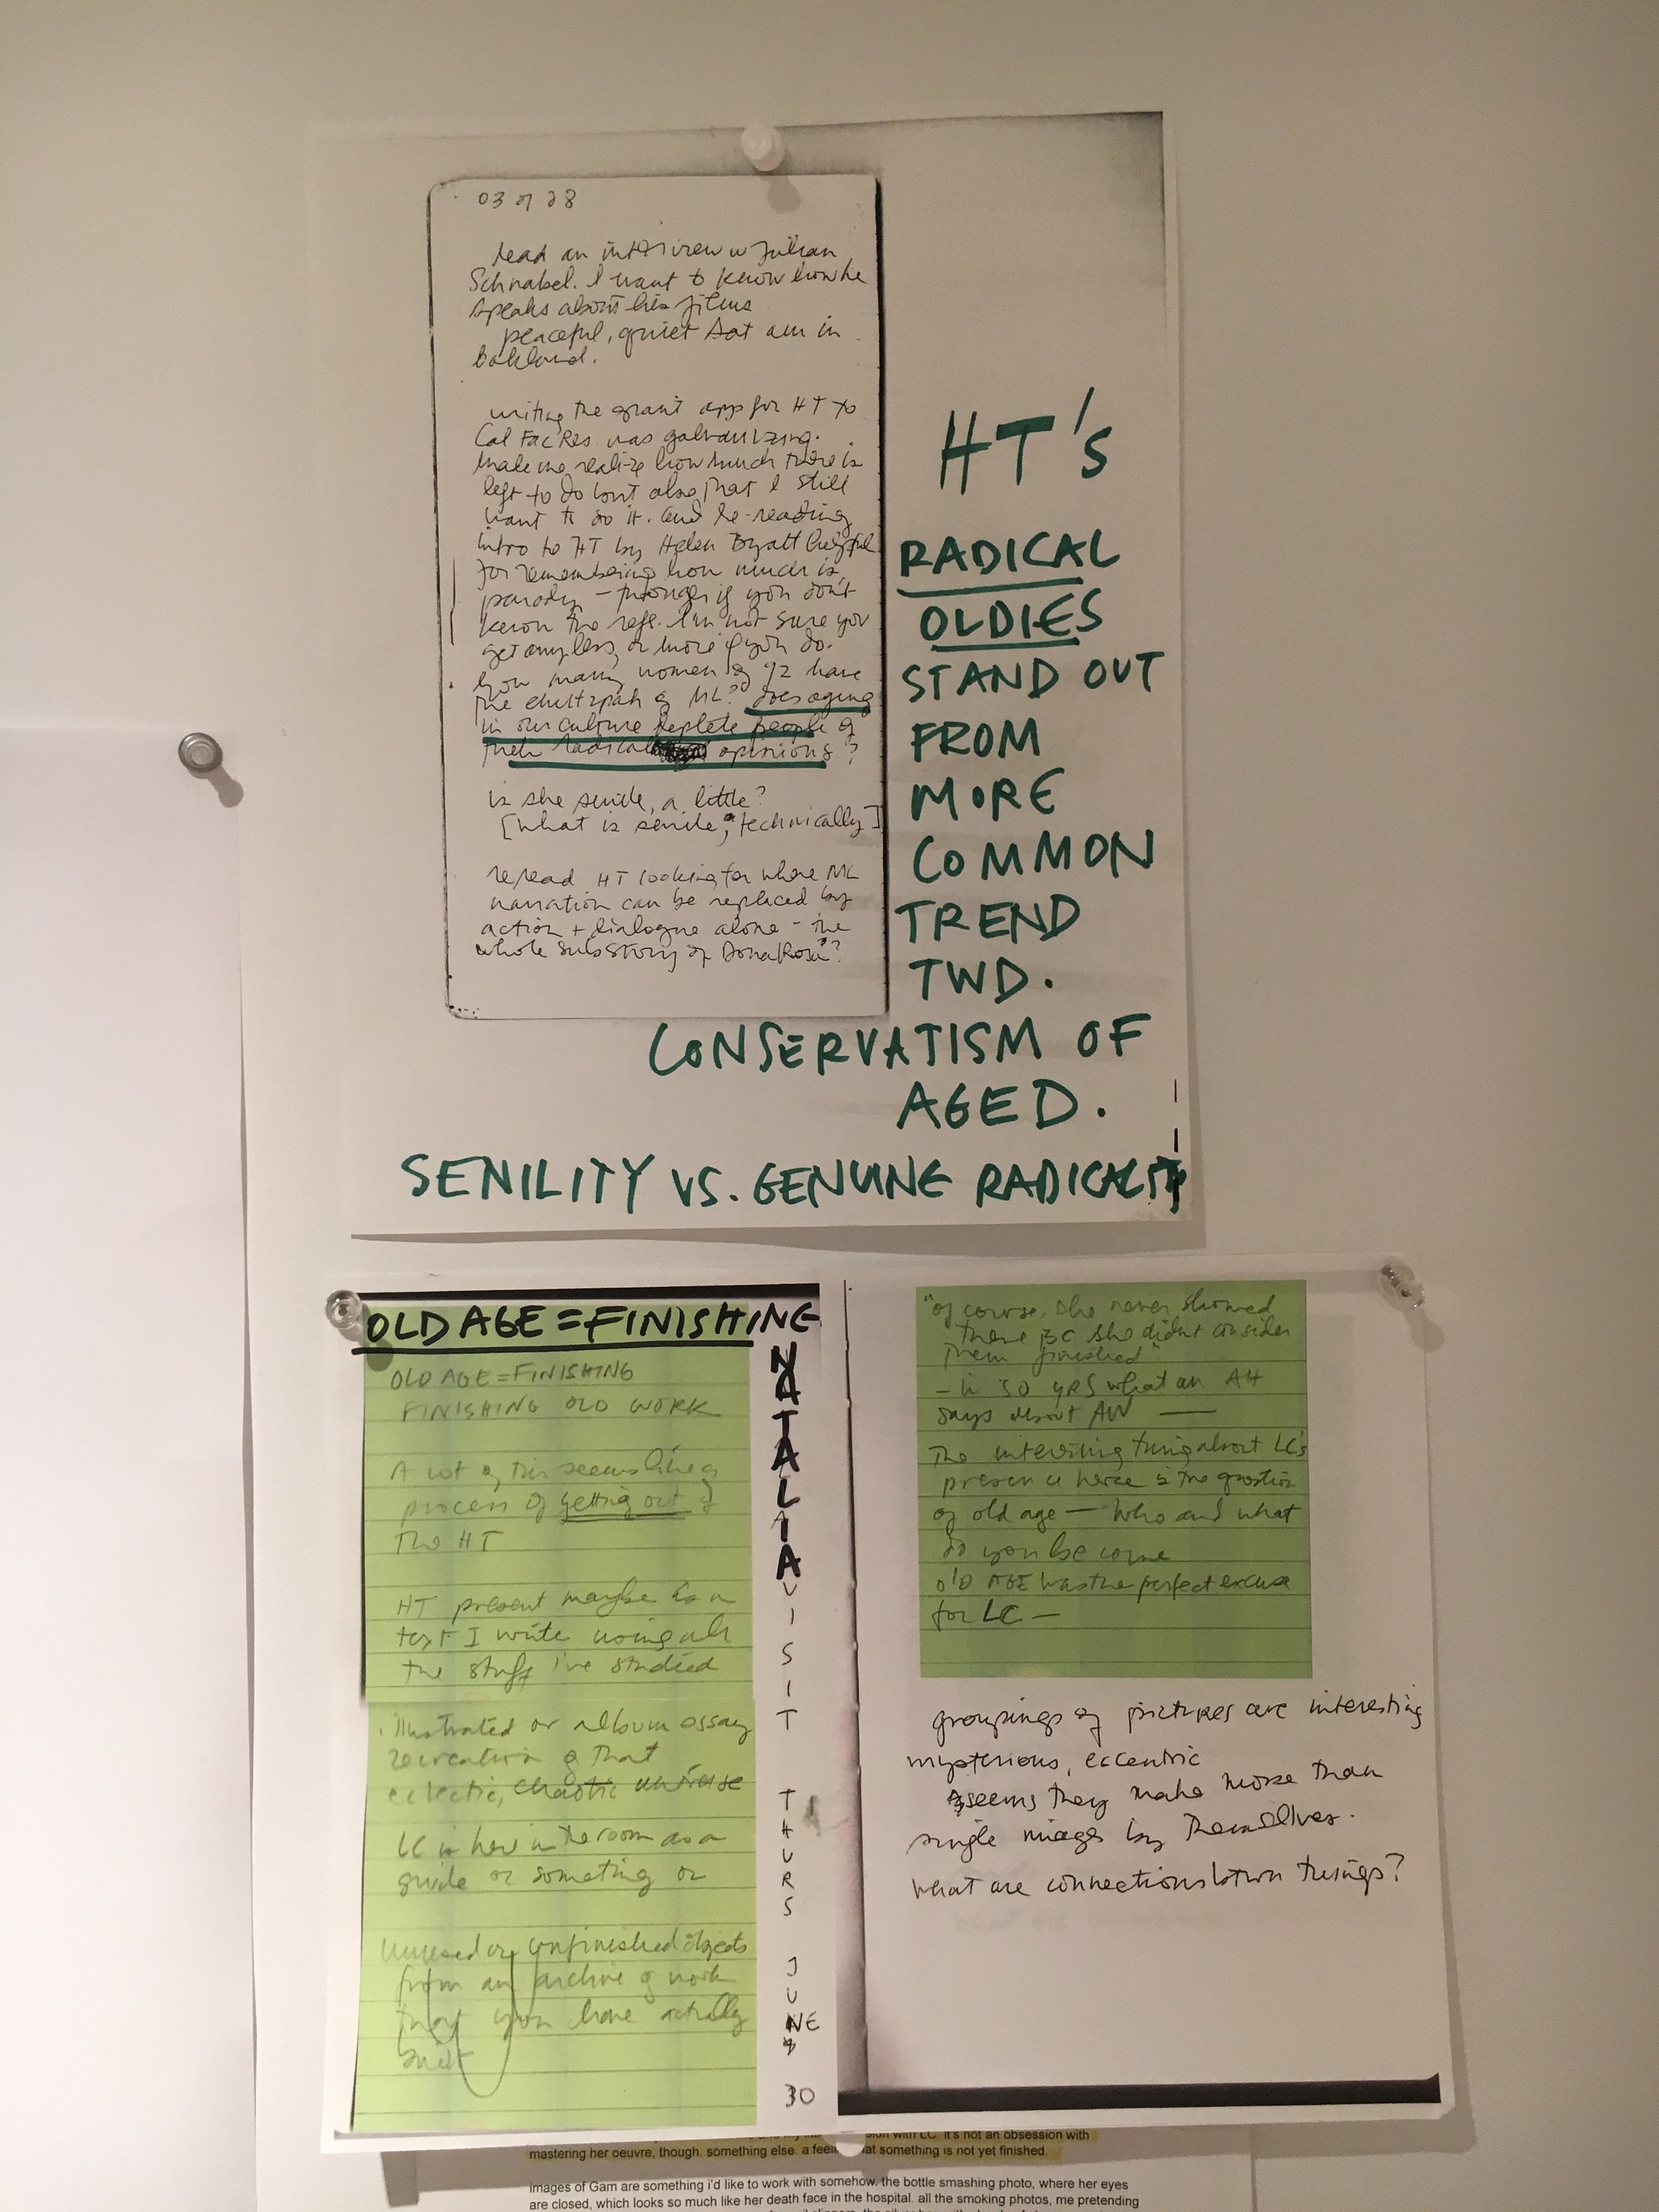 03 07 28
read an interview w Julian
Schnabel. I want to know how he
speaks about his films
peaceful, quiet Sat am in
Oakland.
writing the grant app for HT to
Cal Fac Res was galvanizing.
made me realize how much there is
left to do but also that I still
want to do it. and re-reading
intro to HT by Helen Byatt helpful
for remembering how much is
parody - though if you don't
know the refs. I'm not sure you
get any less, or more if you do.
how many women of 92 have
the chutzpah of ML? does aging
in our culture deplete people of
their radical opinions?
is she senile, a little?
[what is senile, technically]
reread HT looking for where ML
narration can be replaced by
action + dialogue alone - the
whole substory of Dona Rosa?
HT's
RADICAL
OLDIES
STAND OUT
FROM
MORE
COMMON
TREND
TWD.
CONSERVATISM OF
AGED.
SENILITY VS. GENUINE RADICALITY
OLD AGE = FINISHING
OLD AGE = FINISHING
FINISHING OLD WORK
A lot of this seems like a
process of getting out of
the HT
HT present maybe as a
text I write using all
the stuff I've studied
illustrated or album essay
recreation of that
eclectic, chaotic universe
LC is here in the room as a
guide or something or
unused or unfinished objects
from an archive of work
that you have actually
NATALIA VISIT THURS JUNE 30
"of course, she never showed
these BC she didn't consider
them finished"
- in 50 YRS what an AH
says about AW —
The interesting thing about LC's
presence here is the question
of old age — who and what
do you become
old AGE was the perfect excuse
for LC —
groupings of pictures are interesting
mysterious, eccentric
seems they make more than
single images by themselves.
what are connections btwn things?
with LC. it's not an obsession with
mastering her oeuvre, though. something else. a feeling that something is not yet finished.
images of Gam are something i'd like to work with somehow. the bottle smashing photo, where her eyes
are closed, which looks so much like her death face in the hospital. all the smoking photos, me pretending